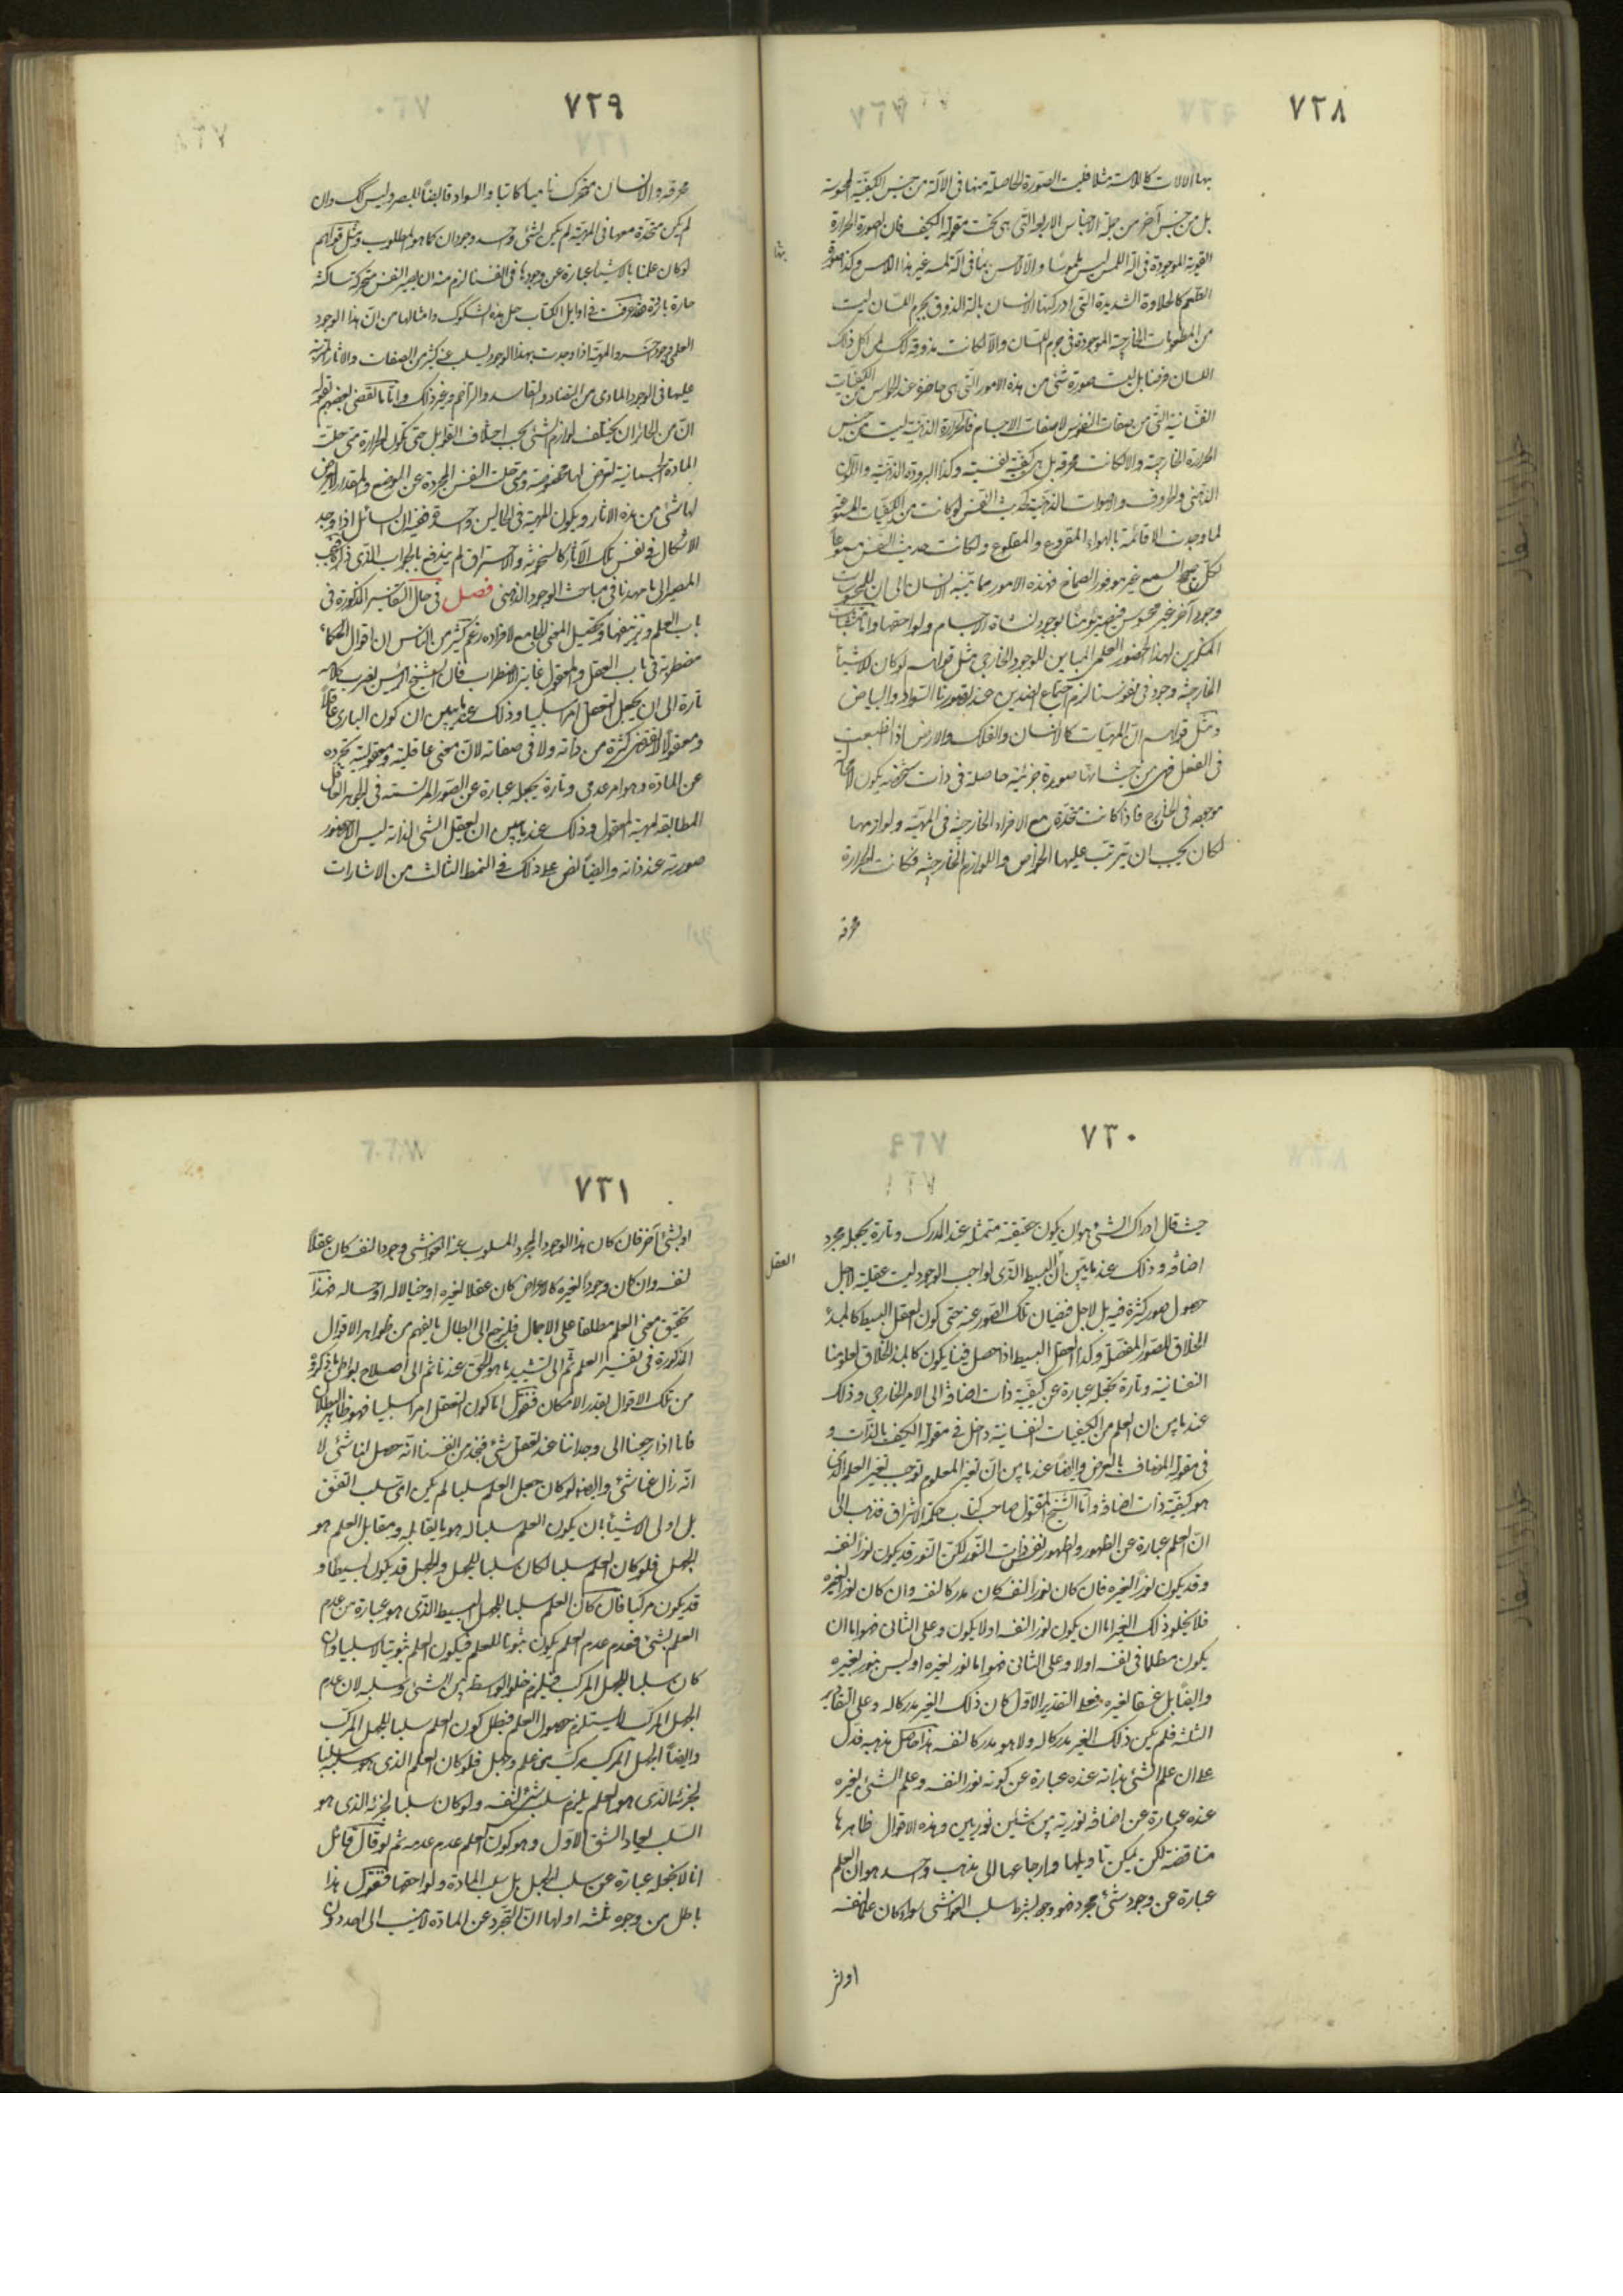 ٧٢٨
بها الالات كاللامسة مثلا فليست الصورة الحاصلة منها فى الآلة من جنس الكيفية المحسوسة
بل من جنس آخر من جملة الاجناس الاربعة التى هى تحت مقولة الكيف فان صورة الحرارة
القوية الموجودة فى آلة اللمس ليس ملموسا والا لاحس بها فى آلة لمسه غير هذا اللامس وكذا صورة
الطعم كالحلاوة الشديدة التى ادركتها الانسان بآلة الذوق بجرم اللسان ليست
من المطعومات الخارجية الموجودة فى جرم اللسان والا لكانت مذوقة لمن اكل ذلك
اللسان فرضنا بل ليست صورة شئ من هذه الامور التى هى حاضرة عند الحواس من الكيفيات
النفسانية التى من صفات النفوس لا صفات الاجسام فالحرارة الذهنية ليست من جنس
الحرارة الخارجية والا لكانت محرقة بل هى كيفية نفسية وكذا البرودة الذهنية واللون
الذهنى والحروف والاصوات الذهنية كحديث النفس لو كانت من الكيفيات المسموعة
لما وجدت الا قائمة بالهواء المقروع والمقلوع ولكانت حديث النفس مسموعا
لكل صحيح السمع غير موفور الصماخ فهذه الامور مما ينبه الانسان الى ان للمحسوسات
وجود آخر غير محسوس فيصير مؤمنا بوجود لنشأة الاجسام ولواحقها واما
المنكرين لهذا الحضور العلمى المباين للوجود الخارجى مثل قولهم لو كان للاشيآء
الخارجية وجود فى نفوسنا لزم اجتماع الضدين عند تصورنا السواد والبياض
ومثل قولهم ان المهيات كالانسان والفلك والارض اذا انطبعت
فى العقل فهى من حيث انها صورة جزئية حاصلة فى ذات شخصية يكون لا محالة
موجودة فى الخارج فاذا كانت متحدة مع الافراد الخارجية فى المهية ولوازمها
لكان يجب ان يترتب عليها الخواص واللوازم الخارجية فكانت الحرارة
محرقة
٧٢٩
محرقة والانسان متحركا ناميا كاتبا والسواد قابضا للبصر وليس كك وان
لم يكن متحدة معها فى المهية لم يكن لشئ واحد وجودان كما هو المطلوب ومثل قولهم
لو كان علمنا بالاشيآء عبارة عن وجودها فى انفسنا لزم منه ان يصير النفس متحركة ساكنة
حارة باردة فقد عرفت فى اوايل الكتاب حل هذه الشكوك وامثالها من ان هذا الوجود
العلمى وجود آخر والمهية اذا وجدت بهذا الوجود يسلب عنه كثير من الصفات والاثار المترتبة
عليها فى الوجود المادى من التضاد والتفاسد والتزاحم وغير ذلك واما ما تفصى بعضهم بقوله
ان من الجائز ان يختلف لوازم الشئ بحسب اختلاف القوابل حتى تكون الحرارة متى حلت
المادة الجسمانية تعرض لها مخصوصة ومتى حلت النفس المجردة عن الوضع والمقدار لا يعرض
لها شئ من هذه الاثار ويكون المهية فى الحالين واحدة ففيه ان السائل اذا اوجد
الاشكال فى نفس تلك الآثار كالسخونة والاحتراق لم يندفع بالجواب الذى ذكره فيجب
المصير الى ما مهدنا فى مباحث الوجود الذهنى فصل فى حال التفاسير المذكورة فى
باب العلم وتزييفها وتحصيل المعنى الجامع لافراده زعم كثير من الناس ان اقوال الحكماء
مضطربة فى باب العقل والمعقول غاية الاضطراب فان الشيخ الرئيس يضرب كلامه
تارة الى ان يجعل التعقل امرا سلبيا وذلك عند ما يبين ان كون البارى عاقلا
ومعقولا لا يقتضى كثرة من ذاته ولا فى صفاته لان معنى عاقليته ومعقوليته تجرده
عن المادة وهو امر عدمى وتارة يجعله عبارة عن الصور المرتسمة فى الجوهر العاقل
المطابقة لمهية المعقول وذلك عند ما يبين ان تعقل الشئ لذاته ليس الا حضور
صورته عند ذاته وايضا نص على ذلك فى النمط الثالث من الاشارات
٧٣٠
حيث قال ادراك الشئ هو ان يكون حقيقته متمثلة عند المدرك وتارة يجعله مجرد
اضافة وذلك عند ما يبين ان العقل البسيط الذى لواجب الوجود ليست عقليته لاجل
حصول صور كثيرة فيه بل لاجل فيضان تلك الصور عنه حتى يكون العقل البسيط كالمبدء
الخلاق للصور المفصلة وكذا العقل البسيط اذا حصل فينا يكون كالمبدء الخلاق لعلومنا
النفسانية وتارة يجعله عبارة عن كيفية ذات اضافة الى الامر الخارجى وذلك
عند ما يبين ان العلم من الكيفيات النفسانية داخل فى مقولة الكيف بالذات و
فى مقولة المضاف بالعرض وايضا عند ما يبين ان تغير المعلوم يوجب تغير العلم الذى
هو كيفية ذات اضافة واما الشيخ المقتول صاحب كتاب حكمة الاشراق فذهب الى
ان العلم عبارة عن الظهور والظهور نفس ذات النور لكن النور قد يكون نورا لنفسه
وقد يكون نورا لغيره فان كان نورا لنفسه كان مدركا لنفسه وان كان نورا لغيره
فلا يخلو ذلك الغير اما ان يكون نورا لنفسه او لا يكون وعلى الثانى فهو اما ان
يكون مظلما فى نفسه اولا وعلى الثانى فهو اما نور لغيره او ليس بنور لغيره
وايضا بل غسقا لغيره فعلى التقدير الاول كان ذلك الغير مدركا له وعلى التقادير
الثلثة فلم يكن ذلك الغير مدركا له ولا هو مدركا لنفسه هذا حاصل مذهبه فدل
على ان علم الشئ بذاته عنده عبارة عن كونه نورا لنفسه وعلم الشئ لغيره
عنده عبارة عن اضافة نورية بين شيئين نوريين وهذه الاقوال ظاهرها
متناقضة لكن يمكن تاويلها وارجاعها الى مذهب واحد هو ان العلم
عبارة عن وجود شئ مجرد فهو وجود بشرط سلب الغواشى سواء كان علما لنفسه
العقل
٧٣١
او لشئ آخر فان كان هذا الوجود المجرد المسلوب عنه الغواشى وجودا لنفسه كان عقلا
لنفسه وان كان وجودا لغيره كالاعراض كان عقلا لغيره او خيالا له او حسا له فهذا
تحقيق معنى العلم مطلقا على الاجمال فلنرجع الى ابطال ما يفهم من ظواهر الاقوال
المذكورة فى تفسير العلم ثم الى تشييد ما هو الحق عندنا ثم الى اصلاح بواطن ما ذكروه
من تلك الاقوال بقدر الامكان فنقول اما كون التعقل امرا سلبيا فهو ظاهر البطلان
فانا اذا رجعنا الى وجداننا عند تعقل شئ فنجد من انفسنا انه حصل لنا شئ لا
انه زال عنا شئ وايضا لو كان جعل العلم سلبا لم يكن اى سلب اتفق
بل اولى الاشيآء بان يكون العلم سلبا له هو ما يقابله ومقابل العلم هو
الجهل فلو كان العلم سلبا لكان سلبا للجهل والجهل قد يكون بسيطا و
قد يكون مركبا فان كان العلم سلبا للجهل البسيط الذى هو عبارة من عدم
العلم بشئ فعدم عدم العلم يكون ثبوتا للعلم فيكون العلم ثبوتيا لا سلبيا وان
كان سلبا للجهل المركب فيلزم خلو الواسطة بين الشئ وسلبه لان عدم
الجهل المركب لا يستلزم حصول العلم فبطل كون العلم سلبا للجهل المركب
وايضا الجهل المركب مركب من علم وجهل فلو كان العلم الذى هو سلبيا
لجزئه الذى هو العلم يلزم سلب الشئ لنفسه ولو كان سلبا لجزئه الذى هو
السلب يعاد الشق الاول وهو كون العلم عدم عدمه ثم لو قال قائل
انا لا نجعله عبارة عن سلب الجهل بل سلب المادة ولواحقها فنقول هذا
باطل من وجوه ثلثة اولها ان التجرد عن المادة لا ينسب الى احد دون